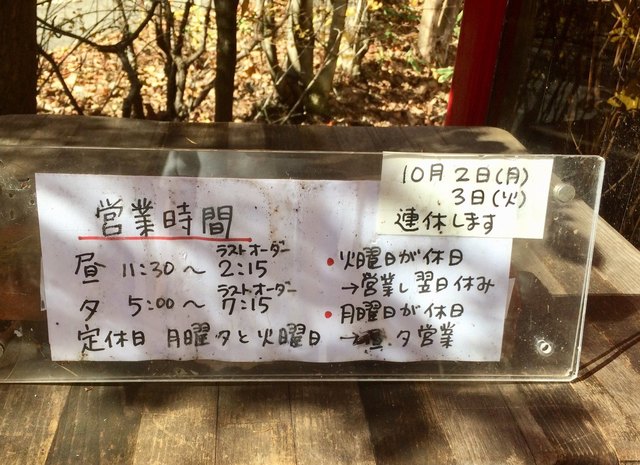 10月 2日(月)
3日(火)
連休します
営業時間
昼 11:30～ラストオーダー2:15
夕 5:00～ラストオーダー7:15
定休日 月曜夕と火曜日
•火曜日が休日
→営業し翌日休み
•月曜日が休日
→昼.夕営業